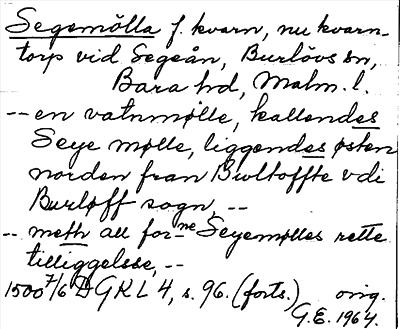 Segemölla f. kvarn, nu kvarn-
torp vid Segeån, Burlövs sn,
Bara hd, Malm. l.
-- en vatnmølle, kallendes
Seye mølle, liggendes østen
norden fran Bultoffte vdi
Burløff sogn, --
-- meth all for^ne Seyemølles rette
tilliggelsse, --
1500 7/6 DGKL 4, s. 96. (forts.) orig.
G.E. 1964.